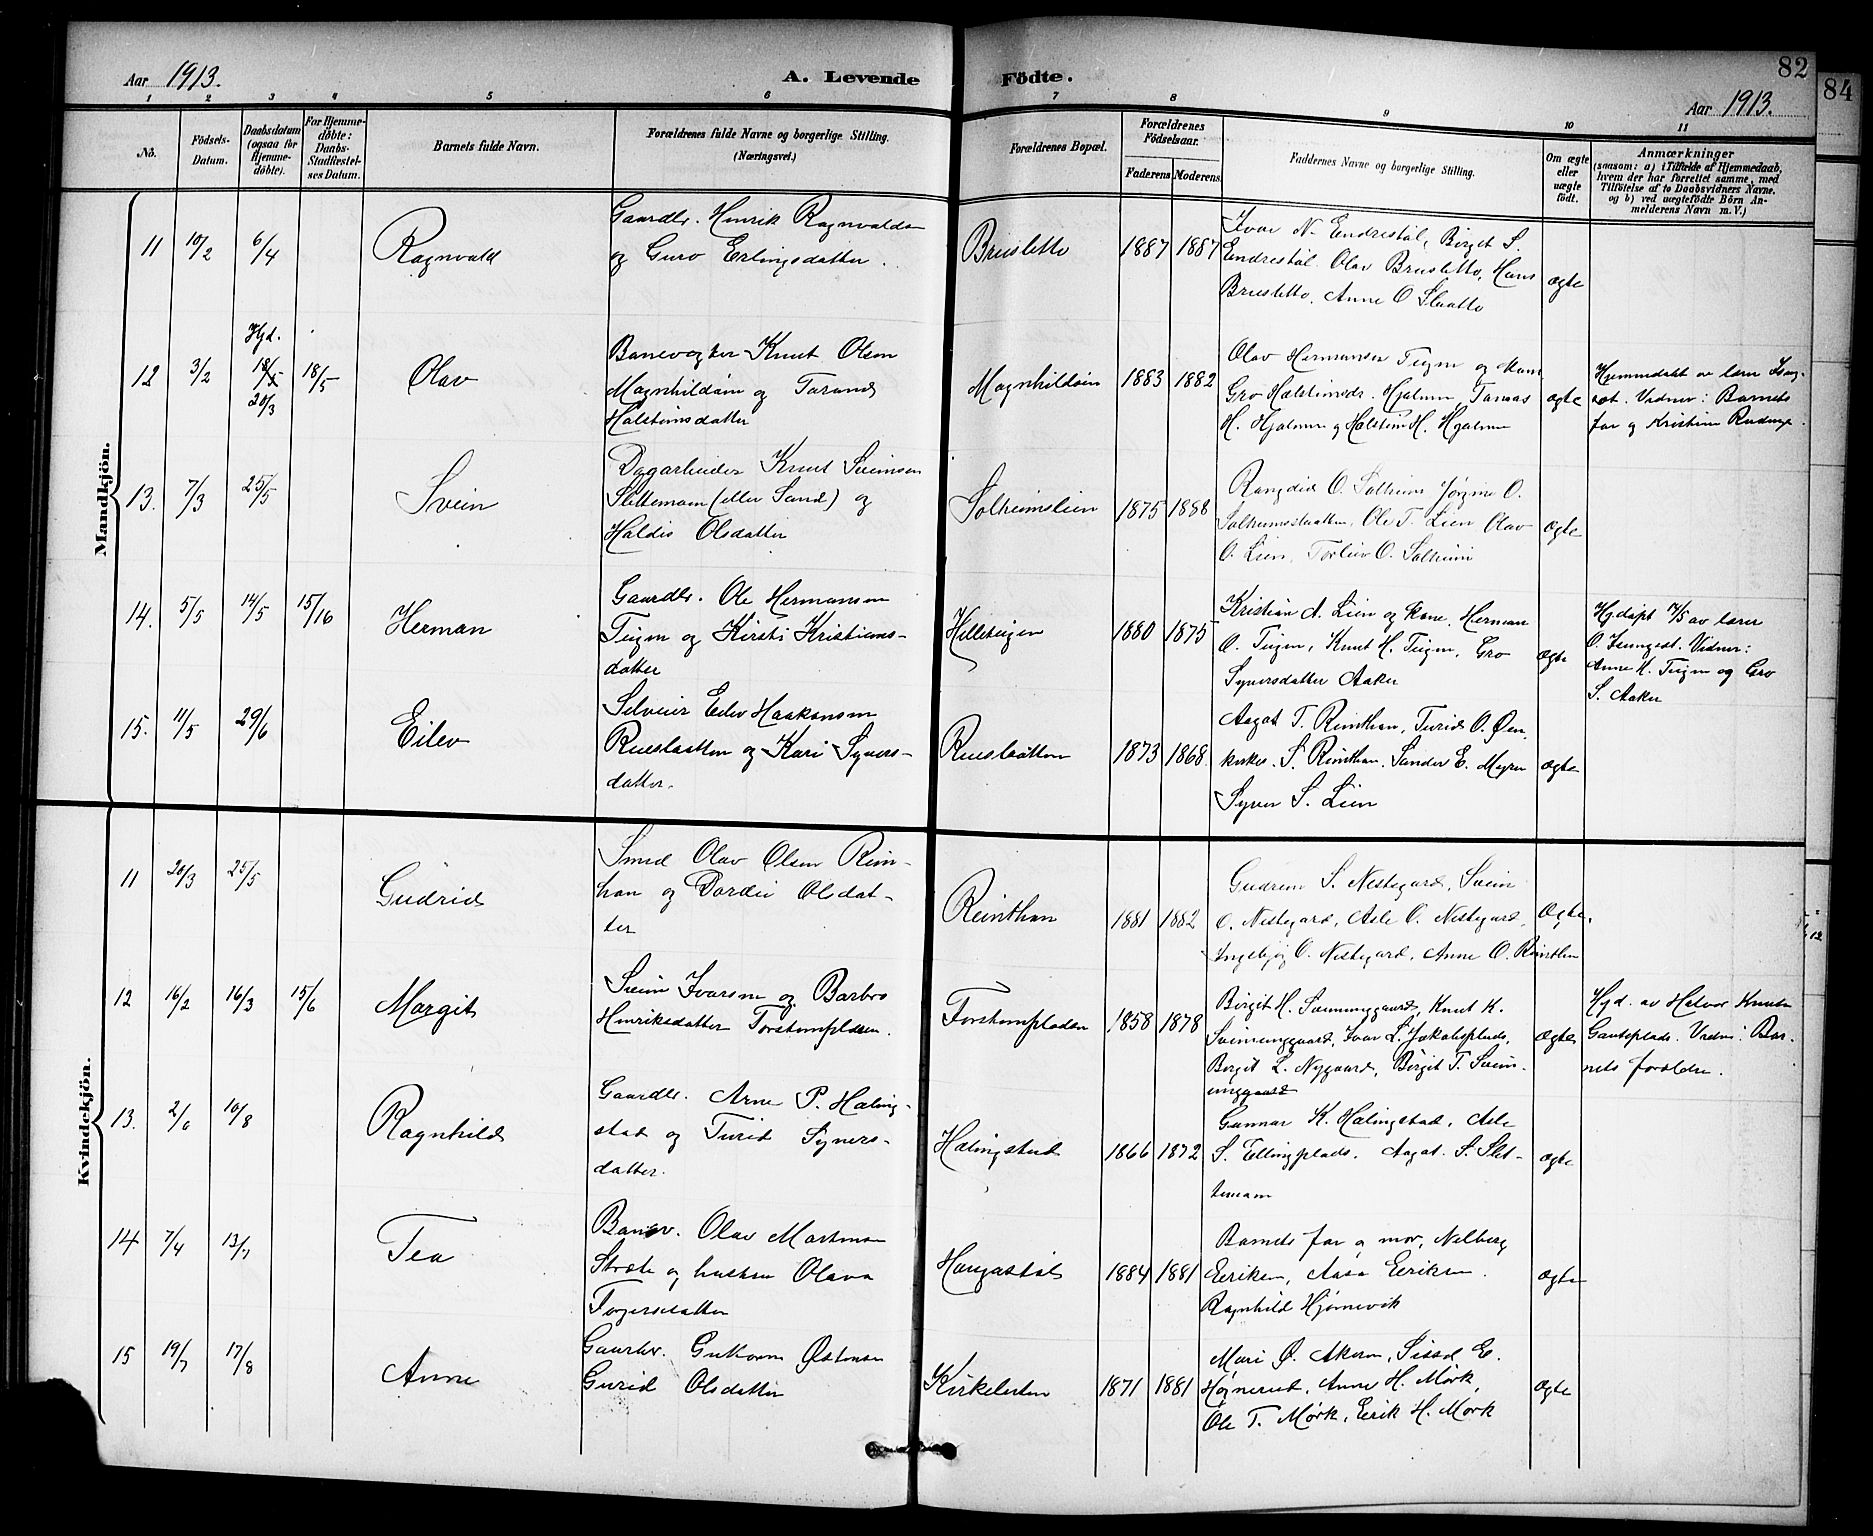 Aar 1913.
A. Levende
Födte.
82
84
Aar 1913.
1 2 3 4 5 6 7 8 9 10 11
No.
Födsels-
Datum.
Daabsdatum
(ogsaa for
Hjemme-
döbte).
For Hjemme-
döbte:
Daabs-
Stadfæstel-
ses Datum.
Barnets fulde Navn.
Forældrenes fulde Navne og borgerlige Stilling.
(Næringsvei.)
Forældrenes Bopæl.
Forældrenes
Födselsaar.
Faderens
Moderens
Faddernes Navne og borgerlige Stilling.
Om ægte
eller
uægte
födt.
Anmærkninger
(saasom: a) i Tilfælde af Hjemmedaab,
hvem der har forrettet samme, med
Tilföielse af to Daabsvidners Navne,
og b) ved uægtefödte Börn An-
melderens Navn m. V.)
Mandkjön.
11 10/2 6/4
Ragnvald
Gaardbr. Henrik Ragnvaldsen
og Guro Erlingsdatter.
Brusletto
1887 1887
Ivar N. Endrestöl, Birgit S.
Endrestöl. Olav Brusletto, Hans
Brusletto. Anne O Slaatto
ægte
12 3/2
Hjd.
20/3
18/5
Olav
Banevogter Knut Olsen
Magnhildöin og Tarand
Halsteinsdatter
Magnhildöin
1883 1882
Olav Hermansen Teigen og kone
Gro Halsteinsdr. Hjalmen, Tomas
H. Hjalmen og Halstein H. Hjalmen
ægte
Hjemmedøbt av lærer
Vidner: Barnets
far og Kristine
13. 7/3 25/5
Svein
Dagarbeider Knut Sveinsen
Slettemoen (eller Sand) og
Haldis Olsdatter
Solheimslien
1875 1888
Rangdid O. Solheim Jørgine O.
Solheimsslaatten, Ole T. Lien Olav
O. Lien, Torleiv O. Solheim
ægte
14. 5/5 14/5 15/16
Herman
Gaardbr. Ole Hermansen
Teigen og Kirsti Kristians-
datter
Helleteigen
1880 1875
Kristian A. Lien og kone, Herman
O. Teigen, Knut H. Teigen, Gro
Syversdatter Aaker
ægte
Hjdøpt 14/5 av lærer
Vidner:
Anne H. Teigen og Gro
S. Aaker
15. 11/5 29/6
Eilev
Selveier Eilev Haakonsen
Rueslaatten og Kari Syvers-
datter.
Rueslaatten
1873 1868
Aagot T. Reinthon, Turid O. Øen,
S. Reinthon. Sander E. Myren
Syver S. Lien
ægte
Kvindekjön.
11 20/3 25/5
Gudrid
Smed Olav Olsen Rein-
ton og Dordei Olsdat-
ter
Reinthon
1881 1882
Gudrun S. Nestegard, Svein
O. Nestegard, Asle O. Nestegard,
Ingebjøg O. Nestegard, Anne O. Reinthon
Ægte.
12 16/2 16/3 15/6
Margit
Svein Ivarsen og Barbro
Henriksdatter Torstenpladsen.
Torstenpladsen
1858 1878
Birgit H. Sveinunggaard, Knut K.
Sveinunggaard, Ivar L. Jakobsplads,
Birgit L. Nygaard, Birgit T. Svein-
unggaard
ægte
Hjd. av Halvor Knutsen
Gautsplads. Vidner: Bar-
nets forældre.
13. 2/6 10/8
Ragnhild
Gaardbr. Arne P. Haling-
stad og Turid Syvers-
datter.
Halingstad
1866 1872
Gunnar K. Halingstad, Asle
S. Ellingplads. Aagot S. Slet-
temoen
ægte
14 7/4 13/7
Tea
Banev. Olav Mortensen
Stræte og hustru Olava
Torgersdatter
Haugastøl
1884 1881
Barnets far og mor, Nelberg
Eeriksen, Aasa Eeriksen.
Ragnhild Hjørnevik
ægte
15 19/7 17/8
Anne
Gaardbr. Guttorm Østensen
Gurid Olsdatter
Kirkelerten
1871 1881
Mari Ø. Akeren, Sissel E.
Anne H. Mørk,
Ole T. Mørk, Eerik H. Mørk
ægte